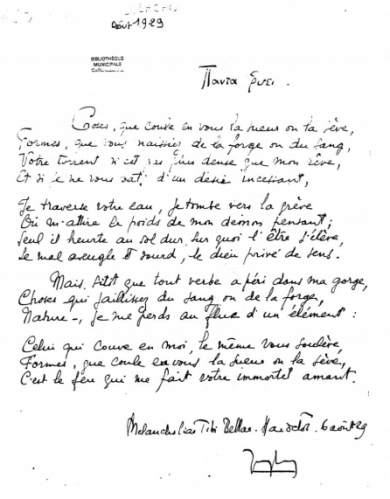 Août 1929
BIBLIOTHÈQUE
MUNICIPALE
Παντα ῥεει.
Choses, que coule en vous la sueur ou la sève,
Formes, que vous naissiez de la forge ou du sang,
Votre torrent n'est pas plus dense que mon rêve,
Et si je ne vous bats d'un désir incessant,
Je traverse votre eau, je tombe vers la grève
Où m'attire le poids de mon démon pensant;
Seul il heurte au sol dur sur quoi l'être s'élève,
Le mal aveugle et sourd, le dieu privé de sens.
Mais, sitôt que tout verbe a péri dans ma gorge,
Choses qui jaillissez du sang ou de la forge,
Nature –, je me perds au flux d'un élément :
Celui qui couve en moi, le même vous soulève,
Formes, que coule en vous la sueur ou la sève,
C'est le feu qui me fait votre immortel amant.
Melancholiae Tibi Bellae. Hardelot. 6 août 29